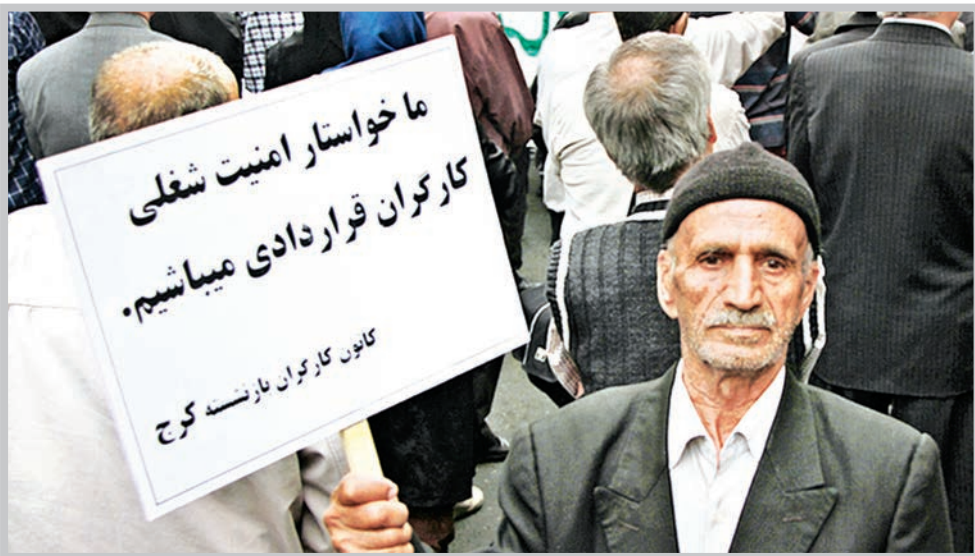 ما خواستار امنیت شغلی
کارگران قراردادی میباشیم.
کانون کارگران بازنشسته کرج